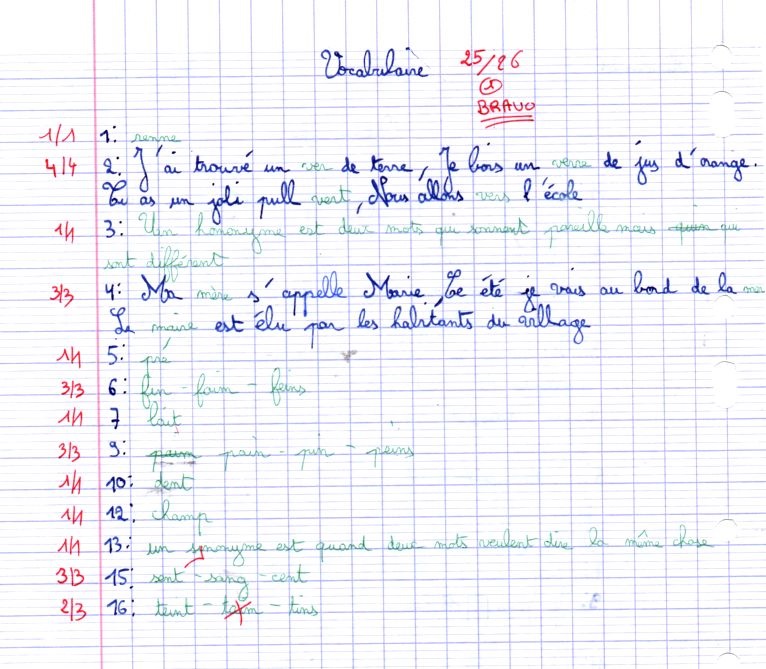 Vocabulaire 25/26
BRAVO
1/1 1: renne
4/4 2: J'ai trouvé un ver de terre, Je bois un verre de jus d'orange.
Tu as un joli pull vert, Nous allons vers l'école
1/1 3: Un homonyme est deux mots qui sonnent pareille mais qui
sont différent
3/3 4: Ma mère s'appelle Marie, Ce été je vais au bord de la mer
Le maire est élu par les habitants du village
1/1 5: pré
3/3 6: fin - faim - feins
1/1 7 lait
3/3 9: pain - pin - peins
1/1 10: dent
1/1 12: champ
1/1 13: un synonyme est quand deux mots veulent dire la même chose
3/3 15: sent - sang - cent
2/3 16: teint - - tins